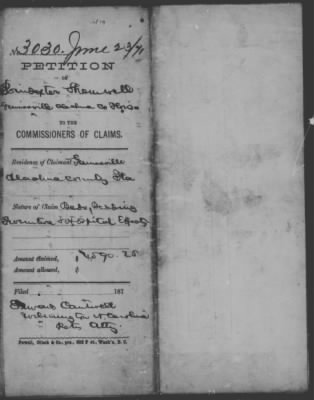 No. 3030. June 23/71
PETITION
OF
Poindexter Thamwell
Gainesville Alachua Co Florida
TO THE
COMMISSIONERS OF CLAIMS.
Residence of Claimant Gainesville
Alachua County Fla
Nature of Claim Beds, Bedding
Furniture & Hospital
Amount claimed, $
Amount allowed, $
Filed 187
Edward Cantwell
Wilmington N Carolina
Atty